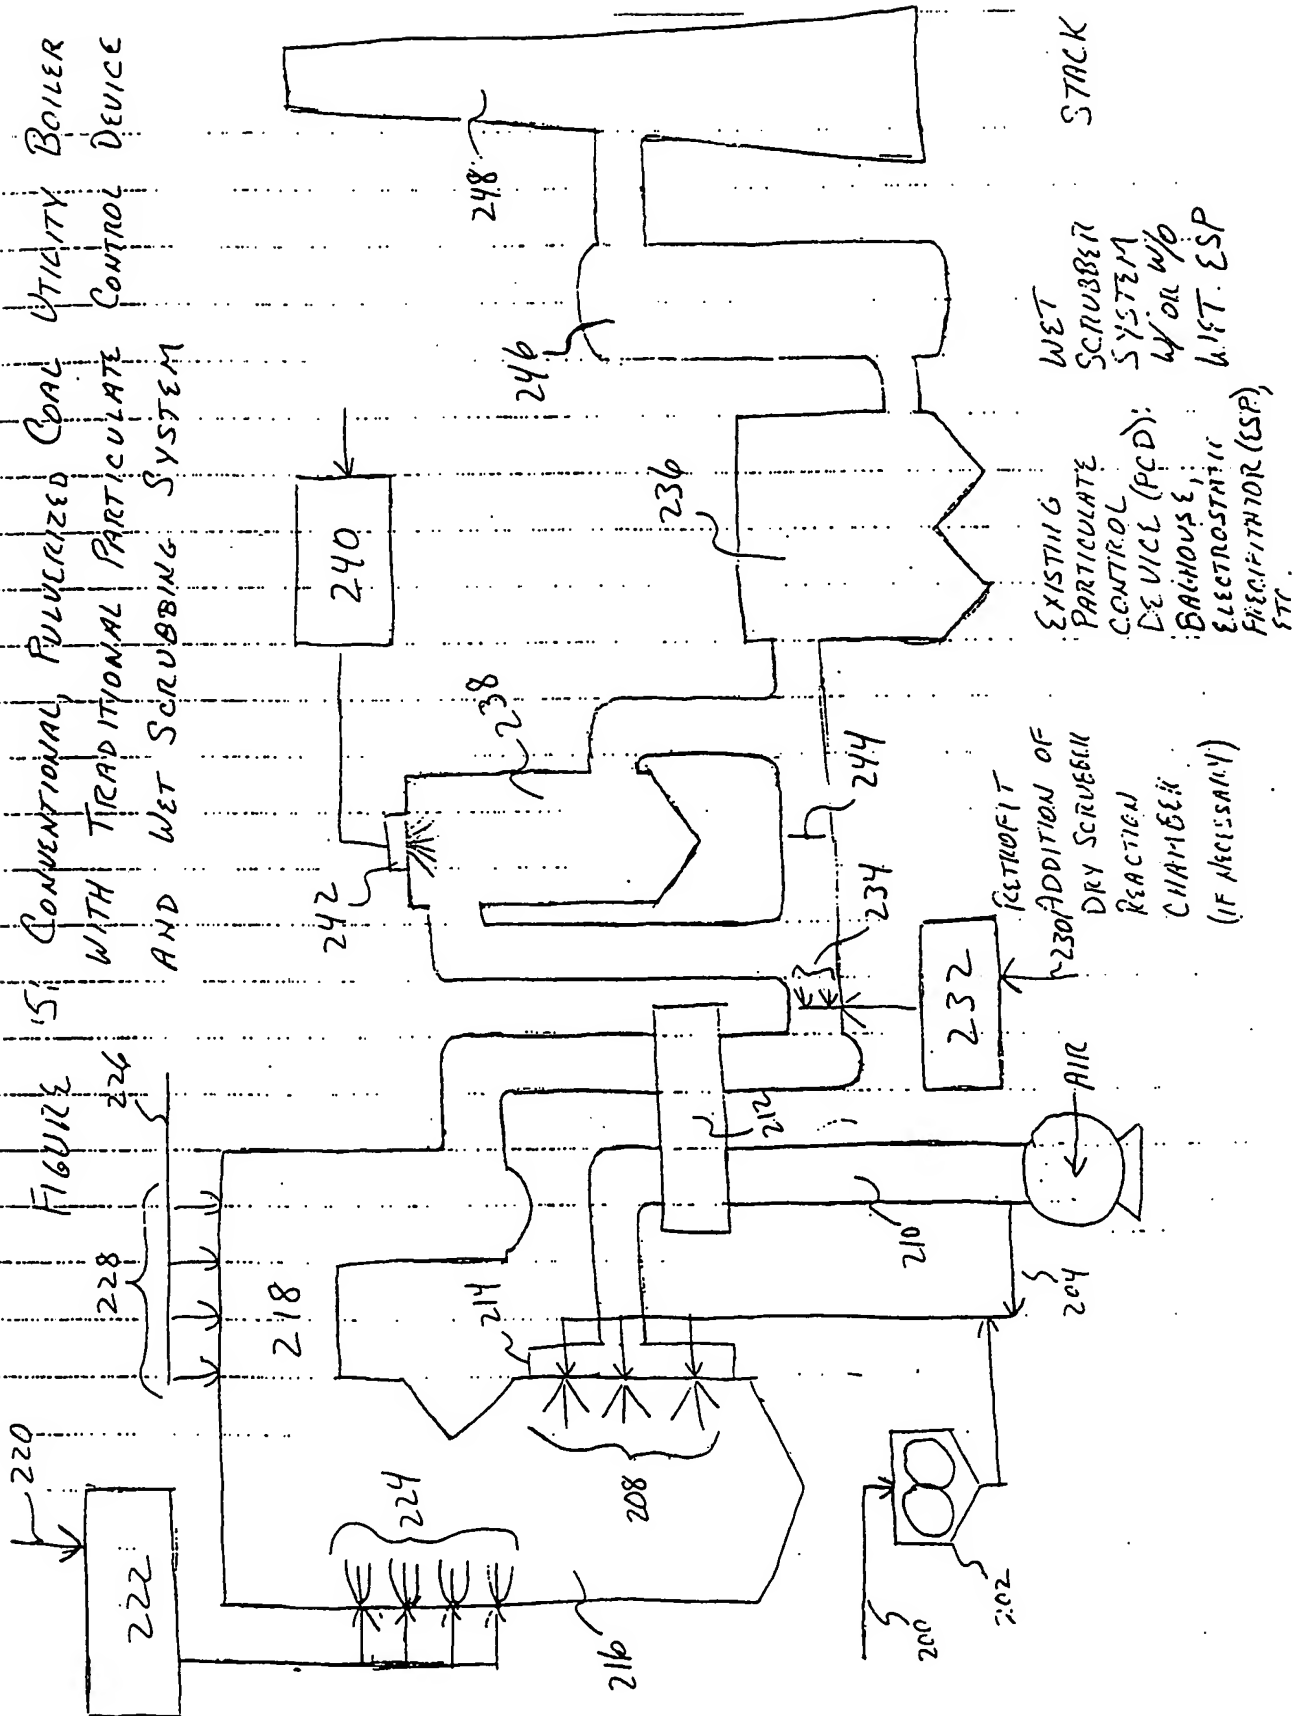 FIGURE 5: CONVENTIONAL, PULVERIZED COAL UTILITY BOILER
WITH TRADITIONAL PARTICULATE CONTROL DEVICE
AND WET SCRUBBING SYSTEM
220
222
224
216
228
226
218
214
208
200
202
204
210
212
AIR
242
240
238
234
244
232
230
236
246
248
RETROFIT
ADDITION OF
DRY SCRUBBER
REACTION
CHAMBER
(IF NECESSARY)
EXISTING
PARTICULATE
CONTROL
DEVICE (PCD):
BAGHOUSE,
ELECTROSTATIC
PRECIPITATOR (ESP),
ETC.
WET
SCRUBBER
SYSTEM
W/ OR W/O
WET ESP
STACK